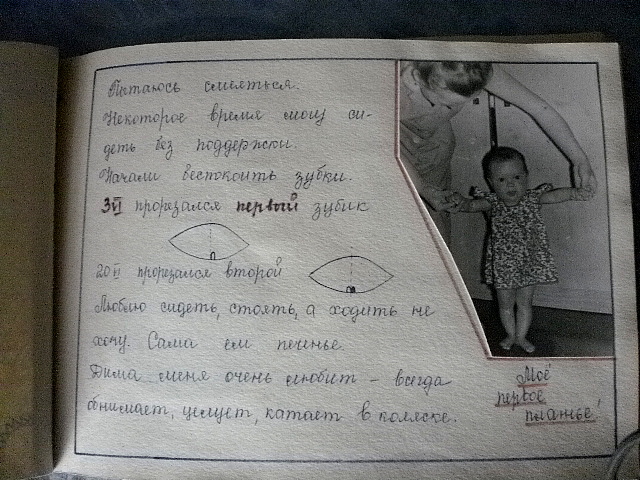 Пытаюсь смеяться.
Некоторое время могу си-
деть без поддержки.
Начали беспокоить зубки.
3 VI прорезался первый зубик
20 VI прорезался второй
Люблю сидеть, стоять, а ходить не
хочу. Сама ем печенье.
Дима меня очень любит – всегда
обнимает, целует, катает в коляске.
Моё
первое
платье!